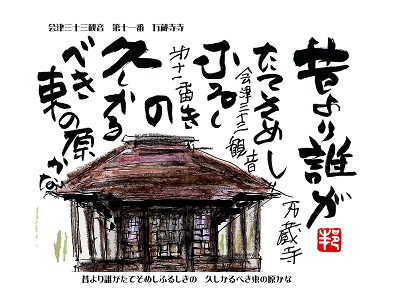 会津三十三観音　第十一番　万蔵寺寺
昔より誰が
たてそめし
ふるしき
の
久しかる
べき
東の原かな
会津三十三観音
第十一番
万蔵寺
邦
昔より誰がたてそめしふるしきの　久しかるべき東の原かな